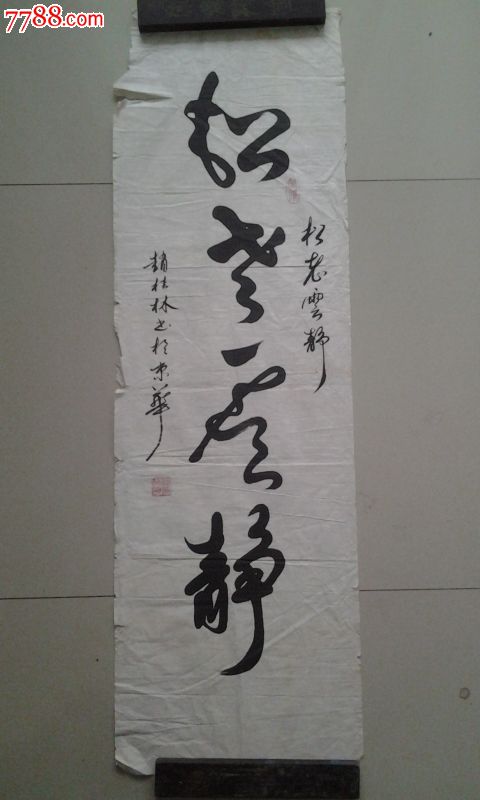 7788.com
松老雲靜
松老雲靜
趙桂林書於京華